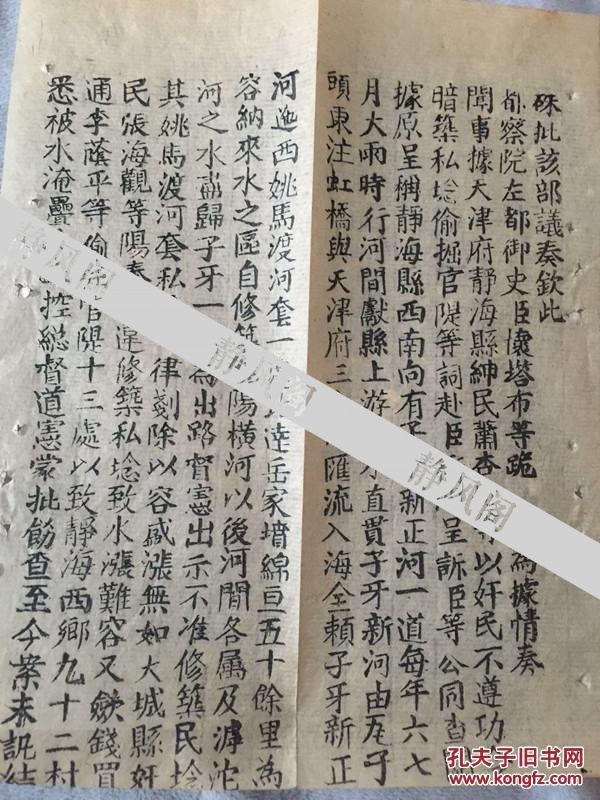 硃批該部議奏欽此
都察院左都御史臣懷塔布等跪 為據情奏
聞事據天津府靜海縣紳民蕭杏 以奸民不遵功
暗築私埝偷掘官隄等詞赴臣 呈訴臣等公同查
據原呈稱靜海縣西南向有子 新正河一道每年六七
月大雨時行河間獻縣上游 水直貫子牙新河由瓦子
頭東注虹橋與天津府三 匯流入海全賴子牙新正
河迤西姚馬渡河套一 達岳家墙綿亘五十餘里為
容納來水之區自修築 陽橫河以後河間各屬及滹沱
河之水盡歸子牙一 為出路督憲出示不准修築民埝
其姚馬渡河套私 律剗除以容盛漲無如大城縣奸
民張海觀等陽奉 違修築私埝致水漲難容又歛錢買
通李蔭平等偷 官隄十三處以致靜海西鄉九十二村
悉被水淹疊 控總督道憲蒙批飭查至今案未訊結
静风阁
静风阁
静风阁
孔夫子旧书网
www.kongfz.com